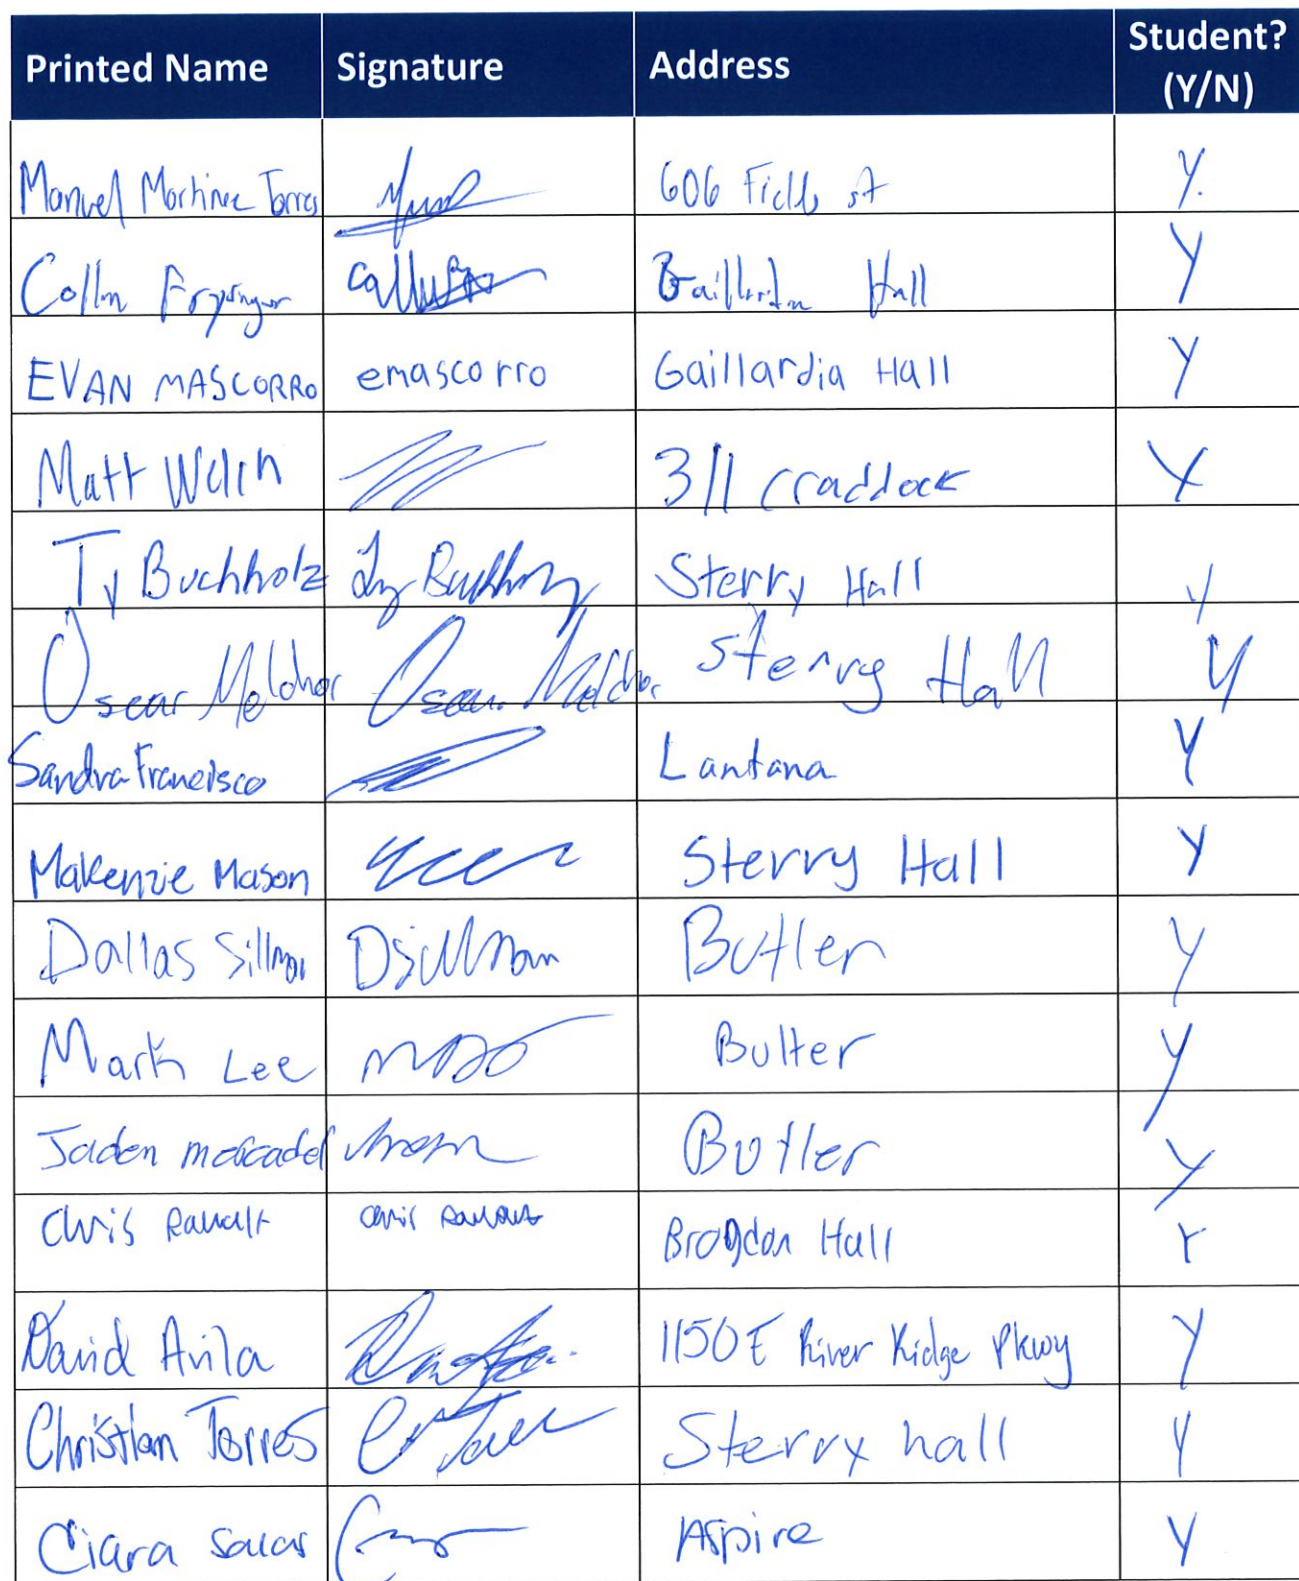 Printed Name Signature Address Student? (Y/N)
Manuel Martinez Torres 606 st Y.
Collin Hall Y
EVAN MASCORRO emascorro Gaillardia Hall Y
Matt Welch 311 Craddock Y
Ty Buchholz Ty Buchholz Sterry Hall Y
Oscar Melchor Oscar Melchor Sterry Hall Y
Sandra Francisco Lantana Y
Makenzie Mason Sterry Hall Y
Dallas Sillman DSillman Butler Y
Mark Lee Butler Y
Jaden Butler Y
Chris Chris Brogdon Hall Y
David Avila 1150 E River Ridge Pkwy Y
Christian Torres Sterry hall Y
Ciara Salas Aspire Y